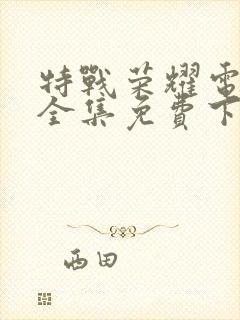 特戰荣耀電
全集免費下
西田